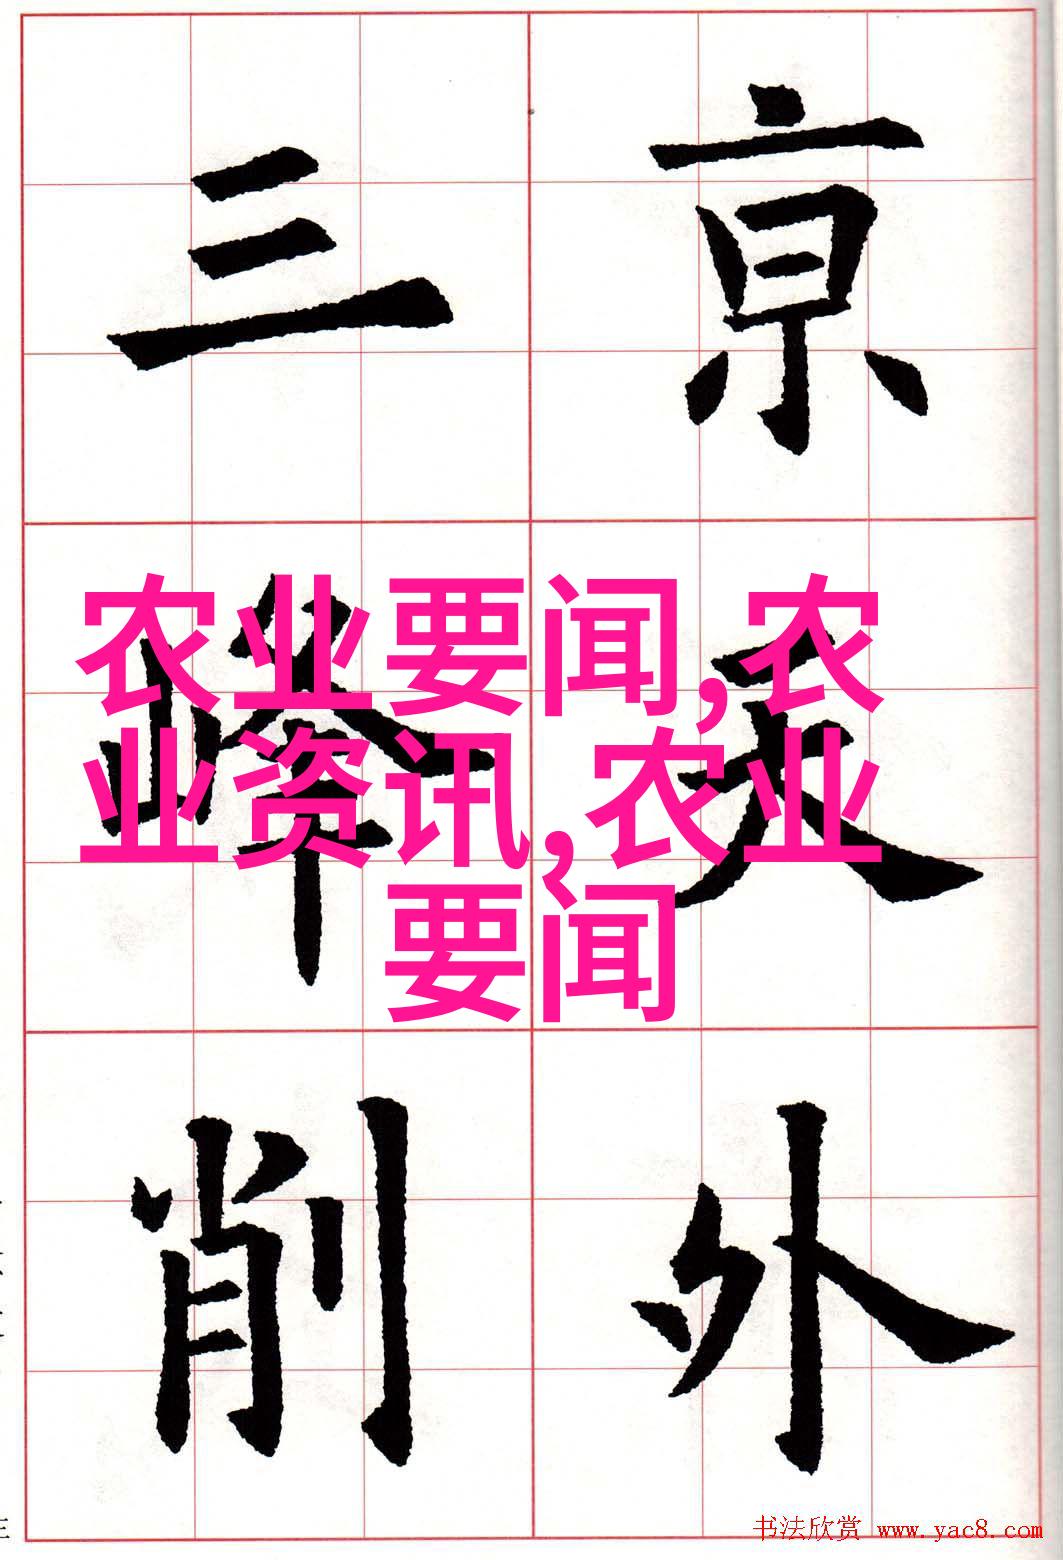 亰天外
三峰削
农业要闻,农
业资讯,农业
要闻
书法欣赏 www.yac8.com